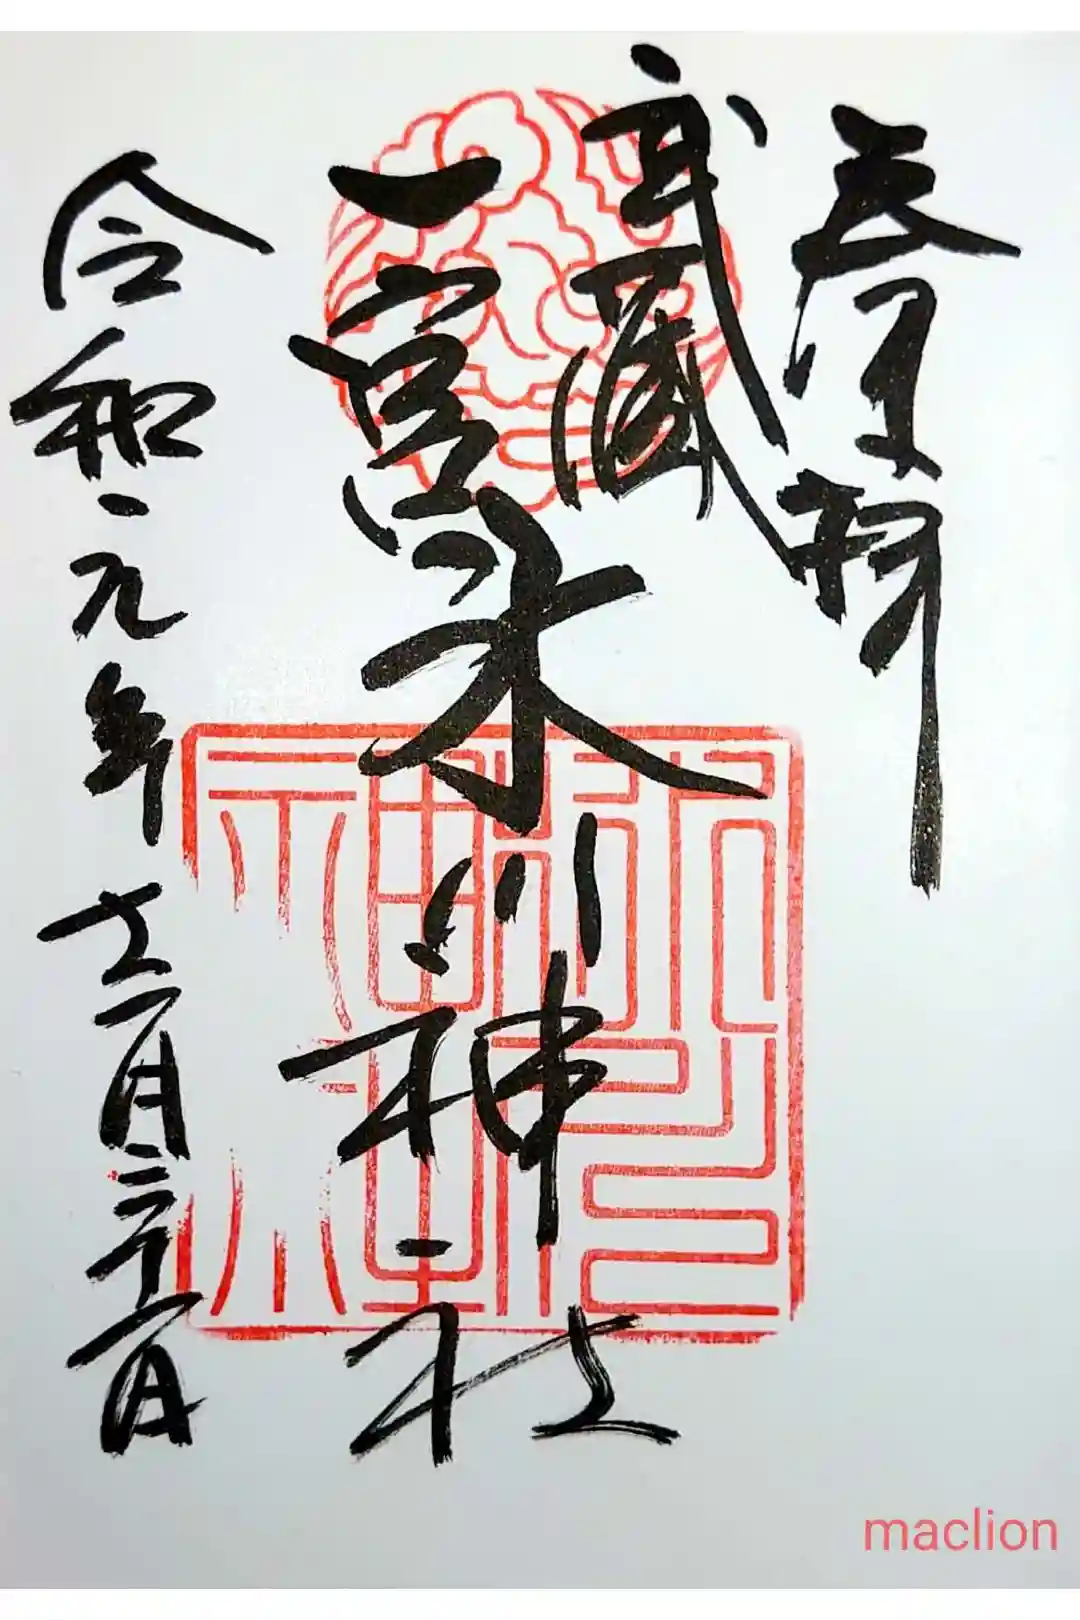 奉拝
武蔵
一宮氷川神社
令和元年十二月
氷川
神社
maclion